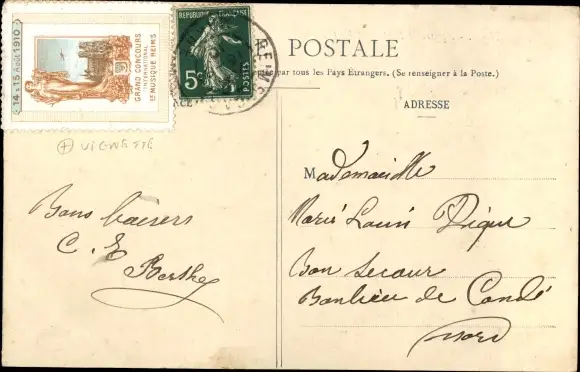 14 & 15 Août 1910
GRAND CONCOURS
INTERNATIONAL
DE MUSIQUE REIMS
REPUBLIQUE FRANÇAISE
5c
POSTES
POSTALE
par tous les Pays Etrangers. (Se renseigner à la Poste.)
ADRESSE
+ VIGNETTE
Bons baisers
C. E
Berthe
Mademoiselle
Marie Louise
Bon Secour
Banlieu de Condé
Nord